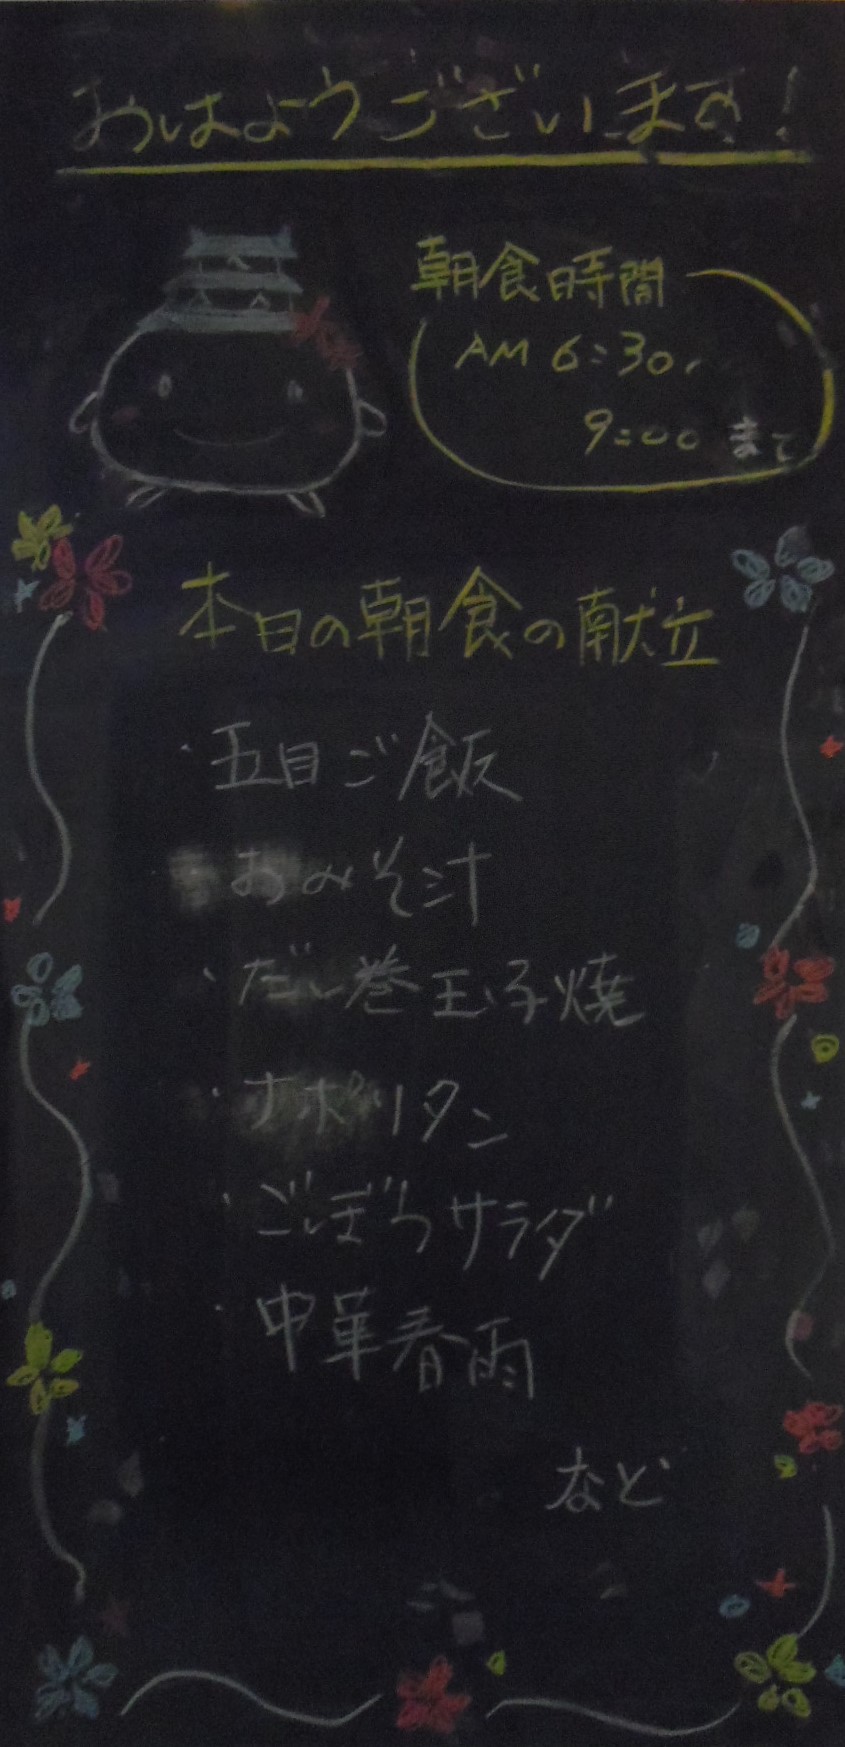 おはようございます!
朝食時間
AM 6:30~
9:00 まで
本日の朝食の献立
・五目ご飯
おみそ汁
・だし巻玉子焼
・ナポリタン
・ごぼうサラダ
・中華春雨
など